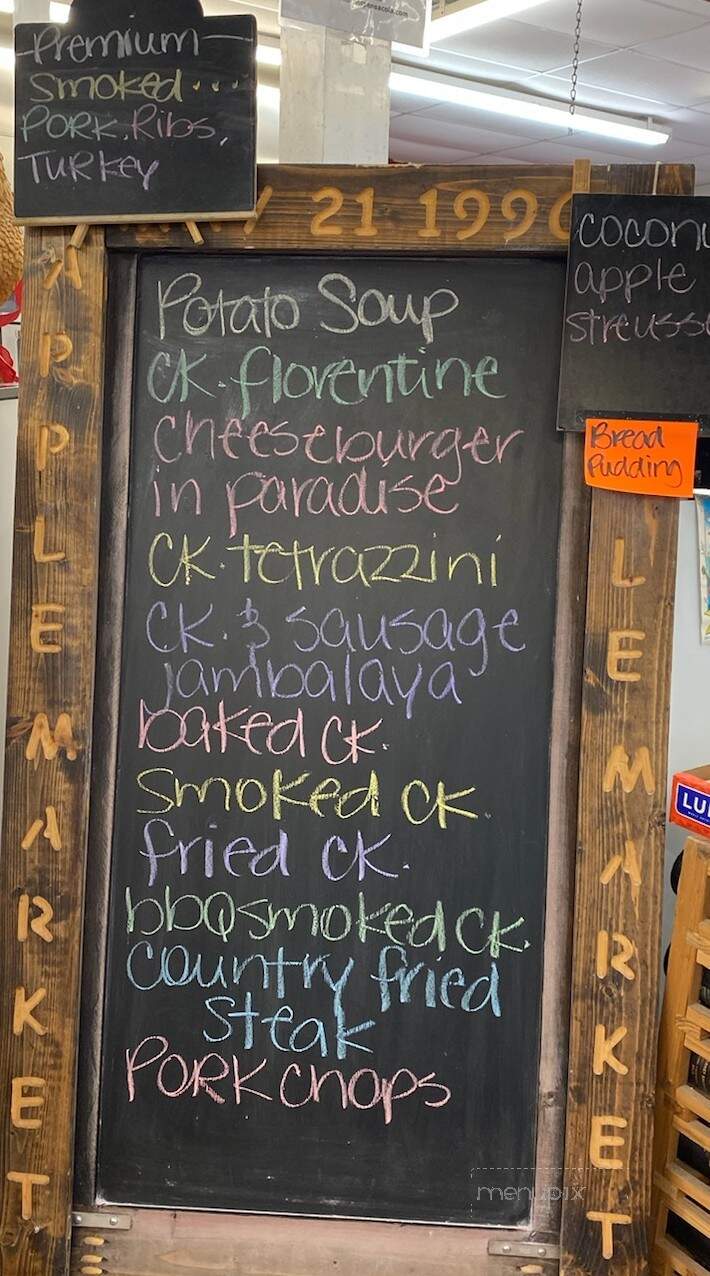 Premium
Smoked...
Pork, Ribs,
Turkey
21 199
APPLE MARKET
Potato Soup
CK. florentine
Cheeseburger
in paradise
CK. tetrazzini
CK. & sausage
jambalaya
baked CK.
Smoked CK
fried CK.
bbQ smoked CK.
Country fried
Steak
PORK Chops
apple
Bread
Pudding
LE MARKET
menupix